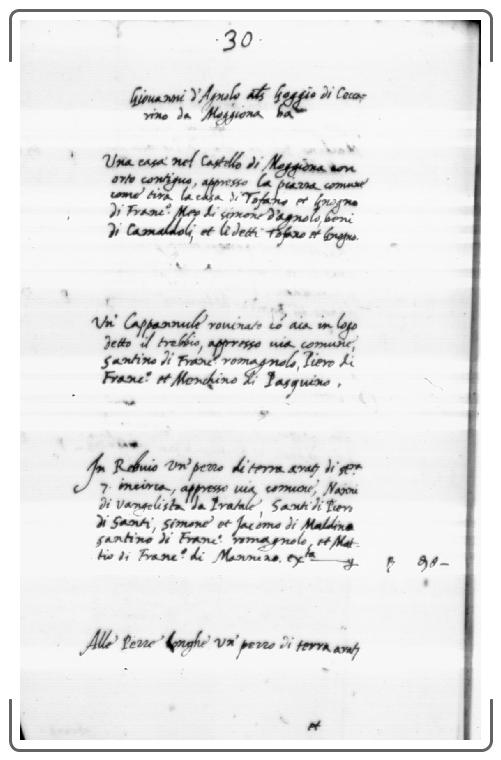 30
Giovanni d'Agnolo als Goggio di Cecca-
rino da Moggiona ha
Una casa nel Castello di Moggiona con
orto contiguo, appresso la piazza comune
come tira la casa di Tofano et Gnogno
di Franc.º Meo di simone d'agnolo, beni
di Camaldoli, et li detti Tofano et Gnogno.
Un' Cappannule rovinato cõ aia in logo
detto il trebbio, appresso via comune,
santino di Franc.º romagnolo, Piero di
Franc.º et Menchino di Pasquino.
In Rebuio Un' pezzo di terra di
7 incirca, appresso via comune, Nanni
di Vangelista da Pratale, Santi di Piero
di Santi, Simone et Jacomo di Maldino
santino di Franc.º romagnolo, et Mat-
tio di Franc.º di Mannino.
Alle Pezze longhe Un' pezzo di terra
et